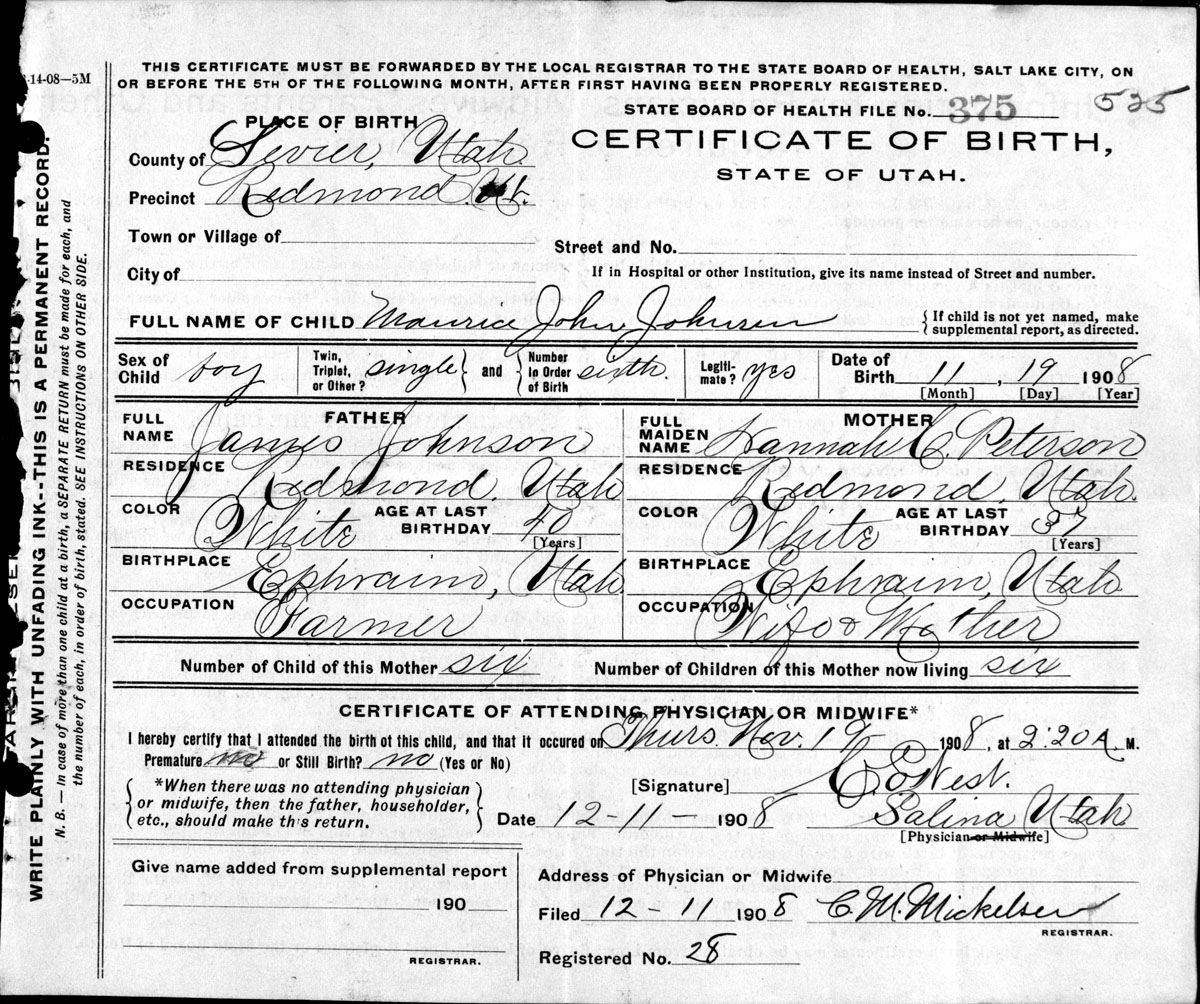 3-14-08—5M
THIS CERTIFICATE MUST BE FORWARDED BY THE LOCAL REGISTRAR TO THE STATE BOARD OF HEALTH, SALT LAKE CITY, ON
OR BEFORE THE 5TH OF THE FOLLOWING MONTH, AFTER FIRST HAVING BEEN PROPERLY REGISTERED.
STATE BOARD OF HEALTH FILE No. 375 535
PLACE OF BIRTH
CERTIFICATE OF BIRTH,
STATE OF UTAH.
County of Sevier, Utah.
Precinct Redmond. Ut.
Town or Village of
Street and No.
City of
If in Hospital or other Institution, give its name instead of Street and number.
FULL NAME OF CHILD Maurice John Johnsen
{ If child is not yet named, make
supplemental report, as directed.
Sex of Child boy
Twin, Triplet, or Other? single } and { Number In Order of Birth sixth.
Legiti-mate? yes
Date of Birth 11, 19 1908
[Month] [Day] [Year]
FATHER
FULL NAME James Johnson
RESIDENCE Redmond, Utah
COLOR White AGE AT LAST BIRTHDAY 40
[Years]
BIRTHPLACE Ephraim, Utah.
OCCUPATION Farmer
MOTHER
FULL MAIDEN NAME Hannah C. Peterson
RESIDENCE Redmond, Utah.
COLOR White AGE AT LAST BIRTHDAY
[Years]
BIRTHPLACE Ephraim, Utah.
OCCUPATION Wife & Mother
Number of Child of this Mother six Number of Children of this Mother now living six
CERTIFICATE OF ATTENDING PHYSICIAN OR MIDWIFE*
I hereby certify that I attended the birth of this child, and that it occured on Thurs. Nov. 19 1908, at 2:20 A. M.
Premature no or Still Birth? no (Yes or No)
{ *When there was no attending physician
or midwife, then the father, householder,
etc., should make this return. }
[Signature] West.
Date 12-11 1908 Salina Utah
[Physician or Midwife]
Give name added from supplemental report
190
REGISTRAR.
Address of Physician or Midwife
Filed 12-11 1908 C. M. Mickelsen
REGISTRAR.
Registered No. 28
WRITE PLAINLY WITH UNFADING INK--THIS IS A PERMANENT RECORD.
N. B. — In case of more than one child at a birth, a SEPARATE RETURN must be made for each, and
the number of each, in order of birth, stated. SEE INSTRUCTIONS ON OTHER SIDE.